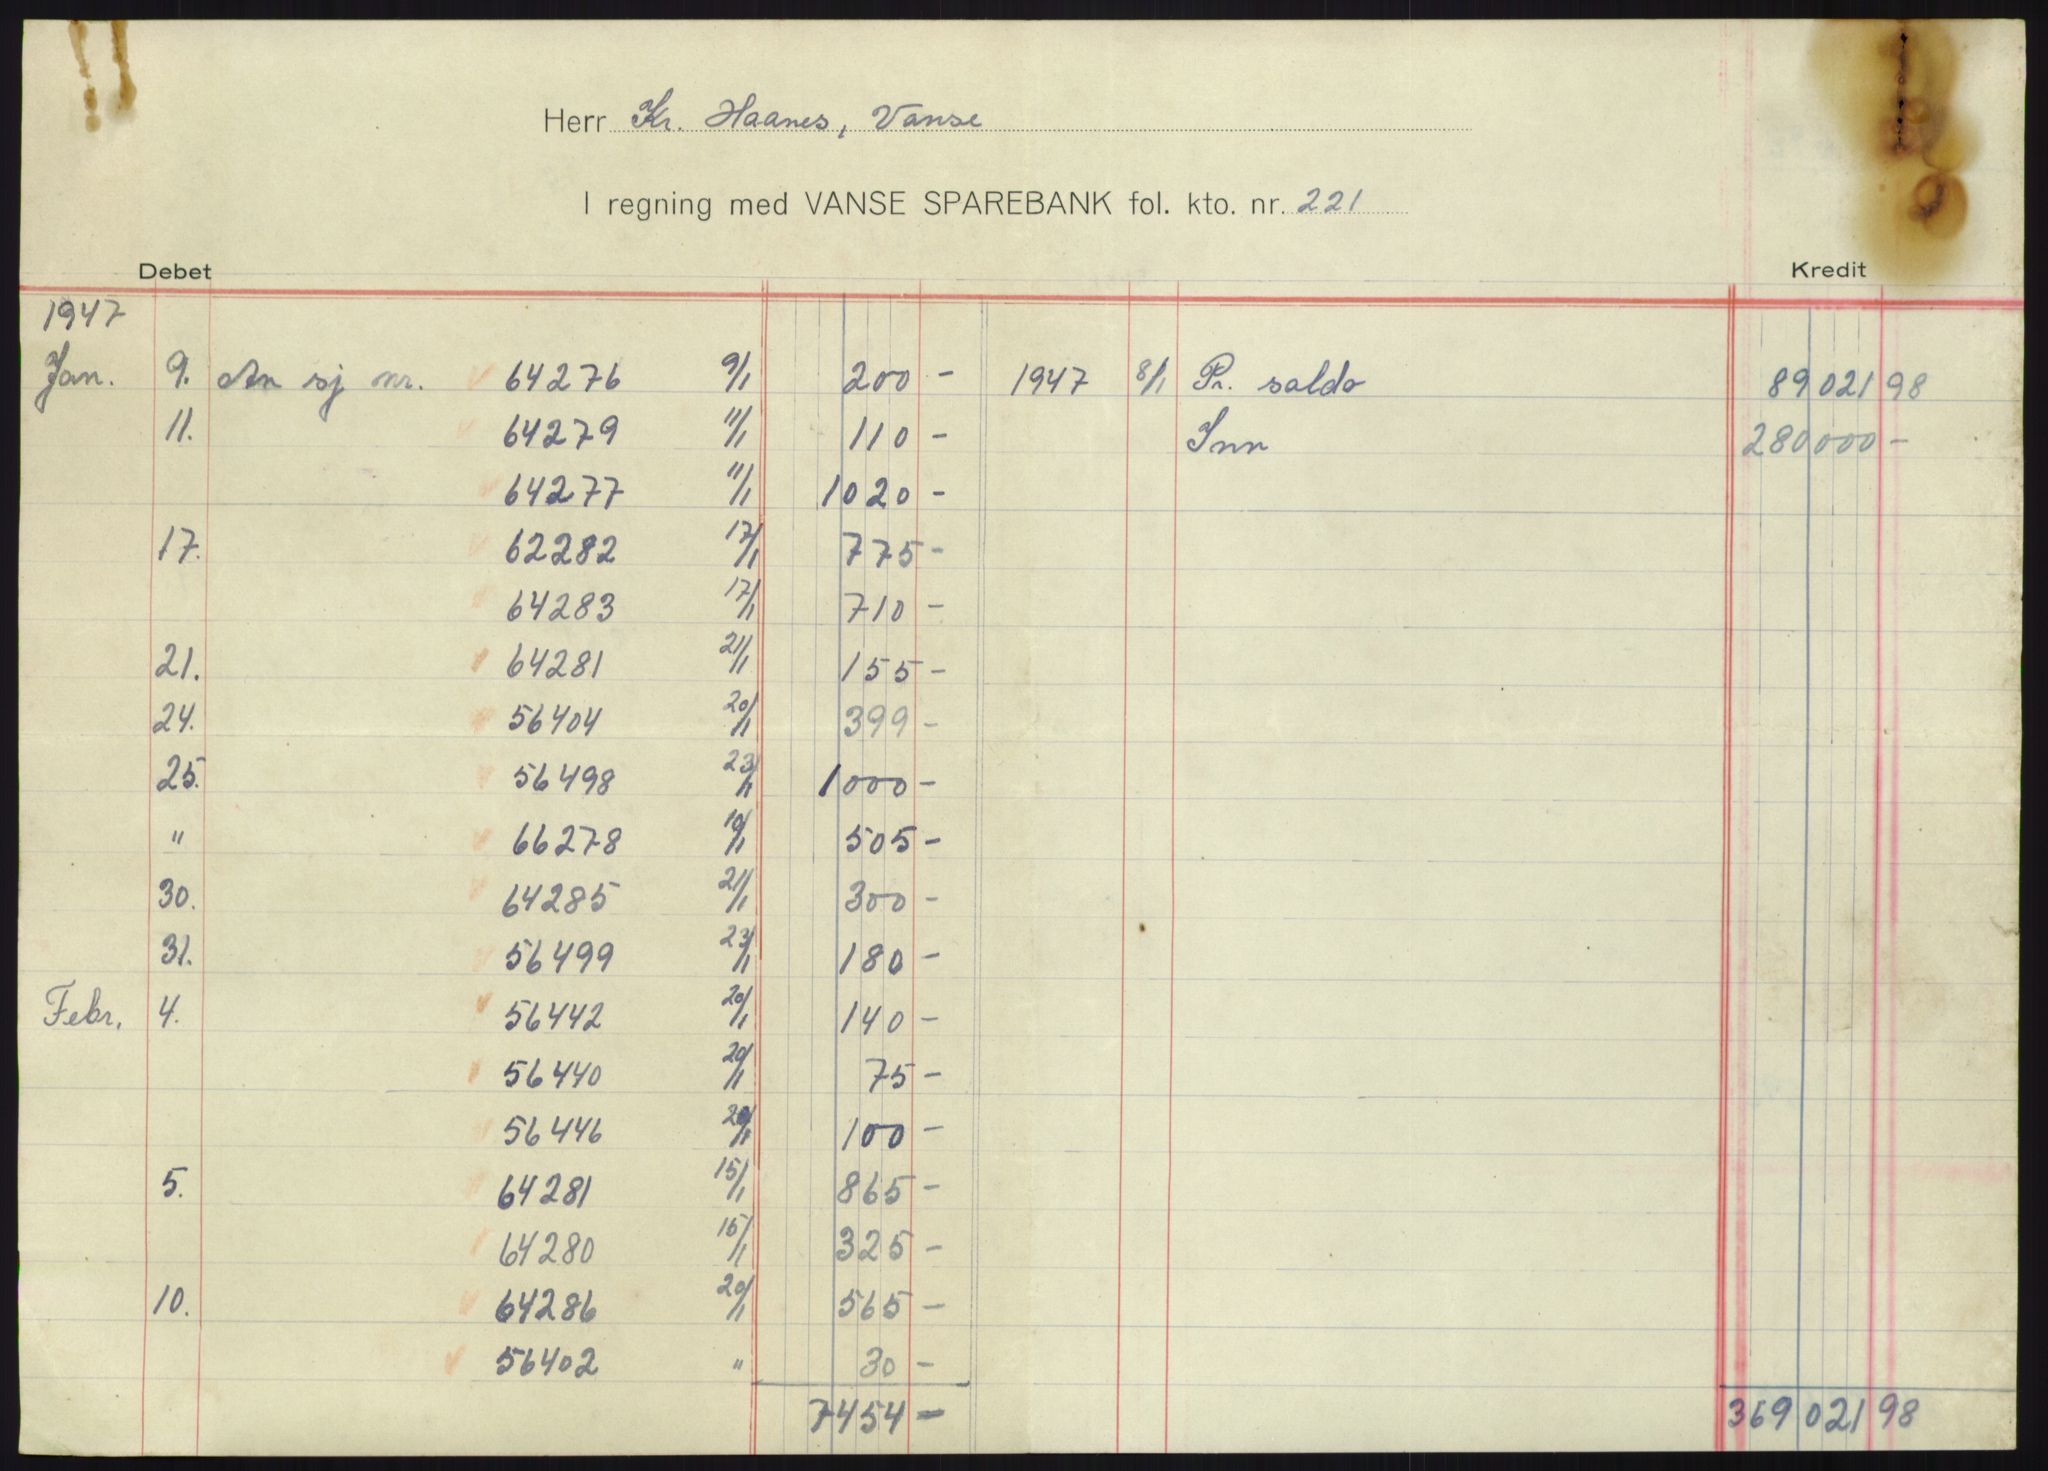 Herr Kr. Haanes, Vanse
I regning med VANSE SPAREBANK fol. kto. nr. 221
Debet Kredit
1947
Jan. 9. An sj nr. 64276 9/1 200 - 1947 8/1 Pr. saldo 89 021 98
11. 64279 11/1 110 - Inn 280 000 -
64277 11/1 1020 -
17. 62282 17/1 775 -
64283 17/1 710 -
21. 64281 21/1 155 -
24. 56404 20/1 399 -
25. 56498 23/1 1000 -
" 66278 10/1 505 -
30. 64285 21/1 300 -
31. 56499 23/1 180 -
Febr. 4. 56442 20/1 140 -
56440 20/1 75 -
56446 20/1 100 -
5. 64281 15/1 865 -
64280 15/1 325 -
10. 64286 20/1 565 -
56402 " 30 -
7454 - 369 021 98